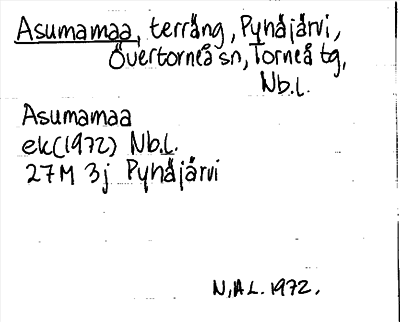 Asumamaa, terräng, Pyhäjärvi,
Övertorneå sn, Torneå tg,
Nb.l.
Asumamaa
ek(1972) Nb.l.
27M 3j Pyhäjärvi
N,A L. 1972.